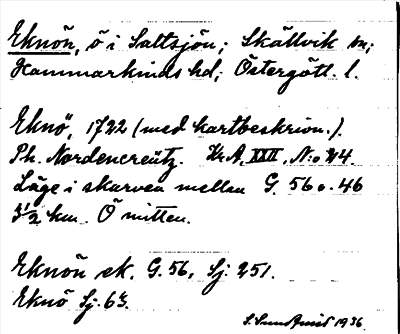 Eknön, ö i Saltsjön; Skällvik sn;
Hammarkinds hd; Östergötl. l.
Eknö, 1722 (med kartbeskrivn.).
Ph. Nordencreütz. Kr.A, XXII, N:o 14.
Läge i skarven mellan G. 56 o. 46
3½ km. Ö mitten.
Eknön ek. G. 56, Sj. 251.
Eknö Sj. 63.
S. Sundqvist 1936.